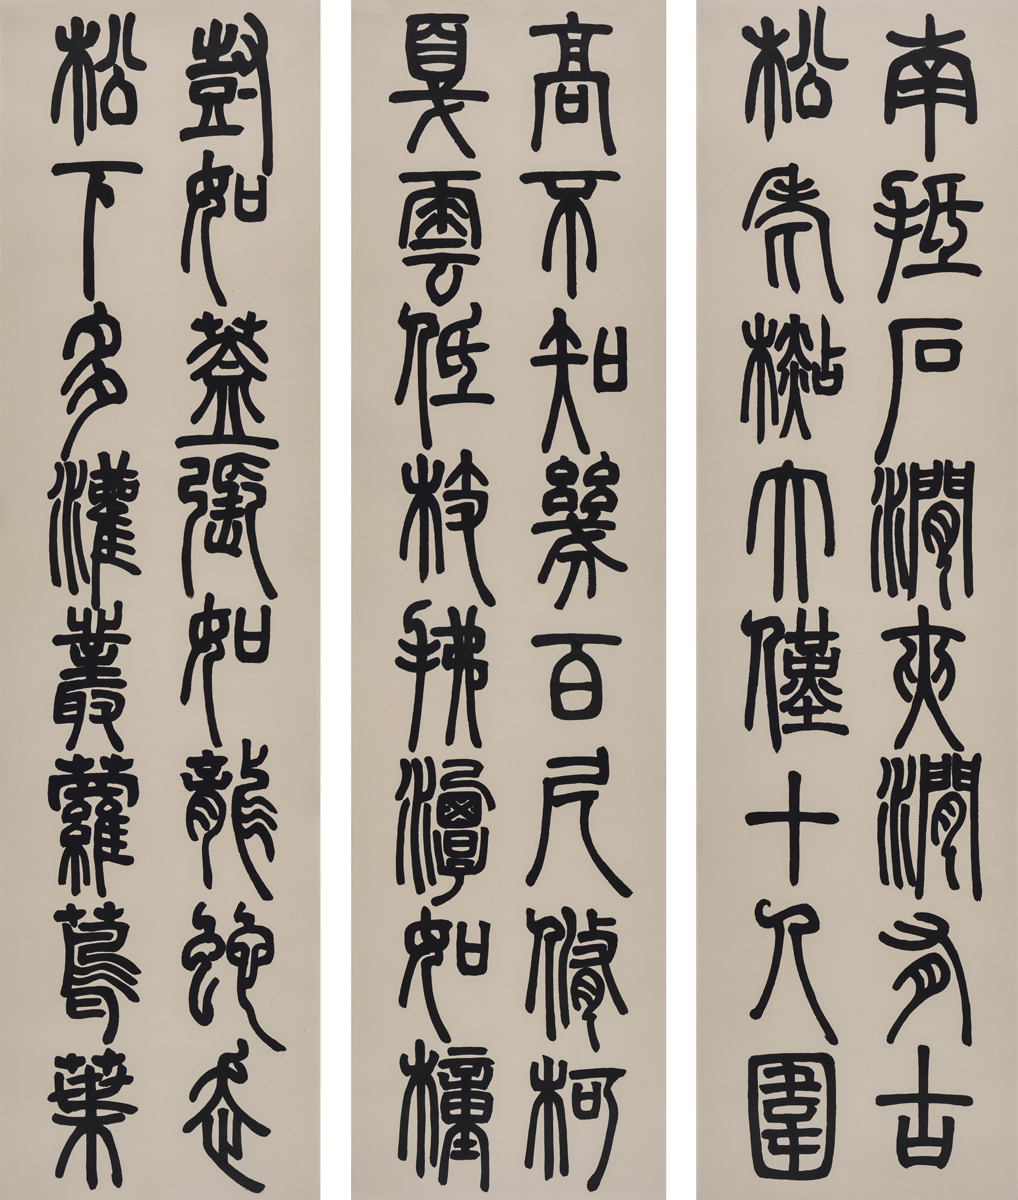 南抵石澗夾澗有古
松老檆大僅十人圍
高不知幾百尺脩柯
戛雲低枝拂潭如橦
尌如蓋張如龍蛇走
松下多灌叢蘿蔦葉